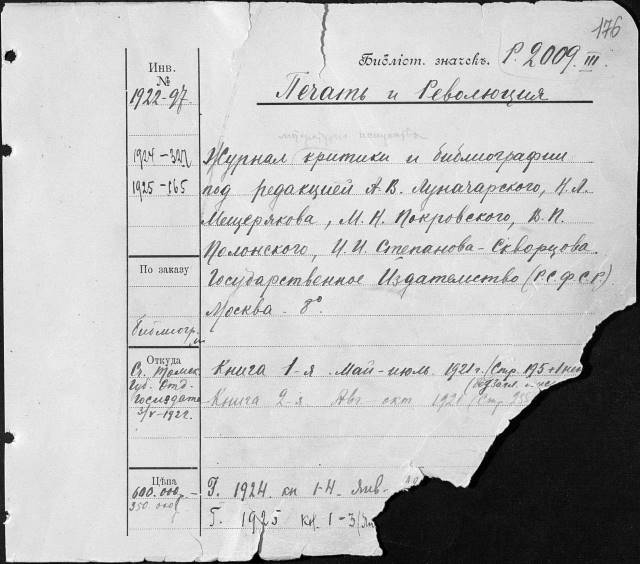 176
Библіот. значекъ. Р. 2009. III.
Инв.
№
1922-97.
1924-327
1925-165
Печать и Революция
Журнал критики и библиографии
под редакцией А.В. Луначарского, Н.Л.
Мещерякова, М.Н. Покровского, В.П.
Полонского, И.И. Степанова-Скворцова.
Государственное Издательство (Р.С.Ф.С.Р.)
Москва. 8°.
По заказу
библиогр.
Откуда
Губ. Отд.
Госиздата
3/V-1922.
Книга 1-я. Май-июль. 1921 г. (Стр. 175 +
Книга 2-я Авг окт 1921 (Стр. 255
Цѣна
600.000
350.000
Г. 1924. кн 1-4. Янв-
Г. 1925 кн. 1-3